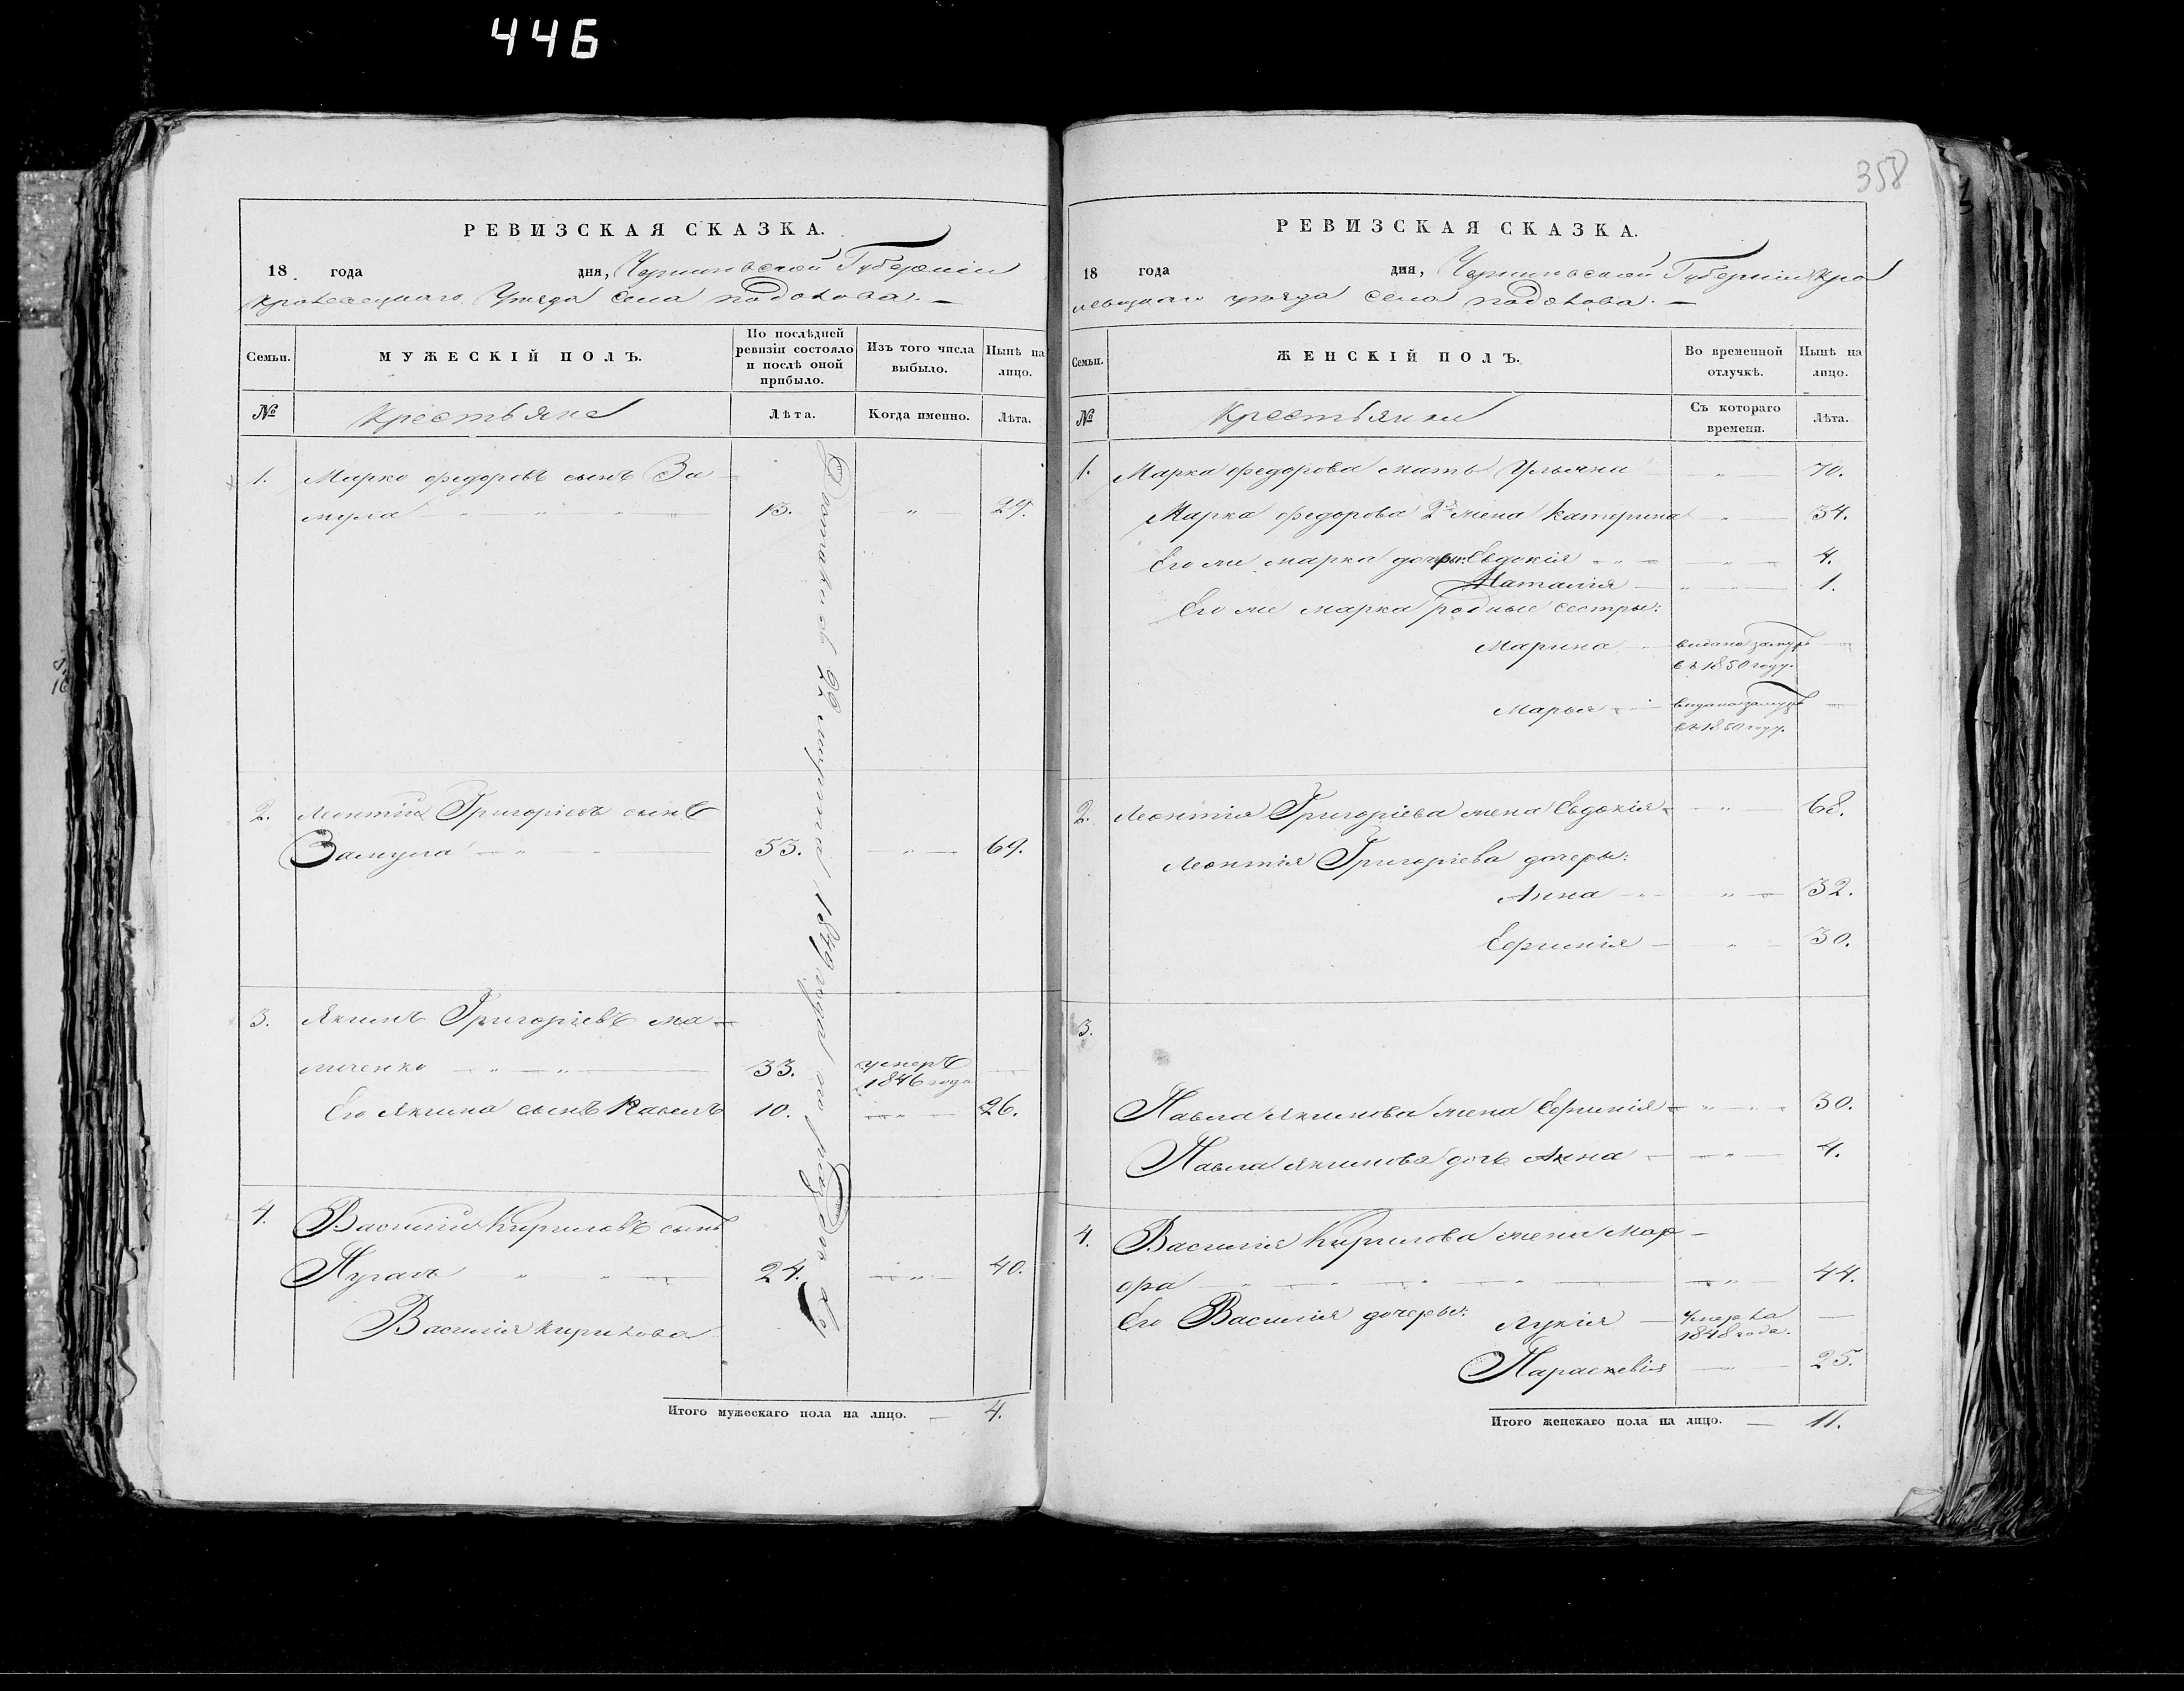 446
358
РЕВИЗСКАЯ СКАЗКА.
18 года дня, Черниговской Губерніи
Кролевецкаго Уезда села Подолова. —
Семьи. МУЖЕСКІЙ ПОЛЪ. По послѣдней ревизіи состояло и послѣ оной прибыло. Изъ того числа выбыло. Нынѣ на лицо.
№ Крестьяне Лѣта. Когда именно. Лѣта.
1. Марко Федоровъ сынъ За-
мула 13. 29.
2. Леонтій Григоріевъ сынъ
Замула 53. 69.
3. Якимъ Григоріевъ Ма-
личенко 33. умеръ
1846 года
Его Якима сынъ Павелъ 10. 26.
4. Василій Кириловъ сынъ
Пугачь 24. 40.
Василія Кирилова
Итого мужескаго пола на лицо. — 4.
РЕВИЗСКАЯ СКАЗКА.
18 года дня, Черниговской Губерніи Кро
левецкаго уезда села Подолова. —
Семьи. ЖЕНСКІЙ ПОЛЪ. Во временной отлучкѣ. Нынѣ на лицо.
№ Крестьянки Съ котораго времени. Лѣта.
1. Марка Федорова мать Ульяна 70.
Марка Федорова 2я жена Катерина 34.
Его же Марка дочери: Евдокія 4.
Наталія 1.
Его же Марка родные сестры:
Марина выдана замужъ
въ 1850 году.
Марья выдана замужъ
въ 1850 году.
2. Леонтія Григоріева жена Евдокія 68.
Леонтія Григоріева дочеры:
Анна 32.
Ефимія 30.
3.
Павла Якимова жена Ефимія 30.
Павла Якимова дочь Анна 4.
4. Василія Кирилова жена Мар-
фа 44.
Его Василія дочеры: Лукія — умерла
1848 года.
Параскевія 25.
Итого женскаго пола на лицо. — 11.